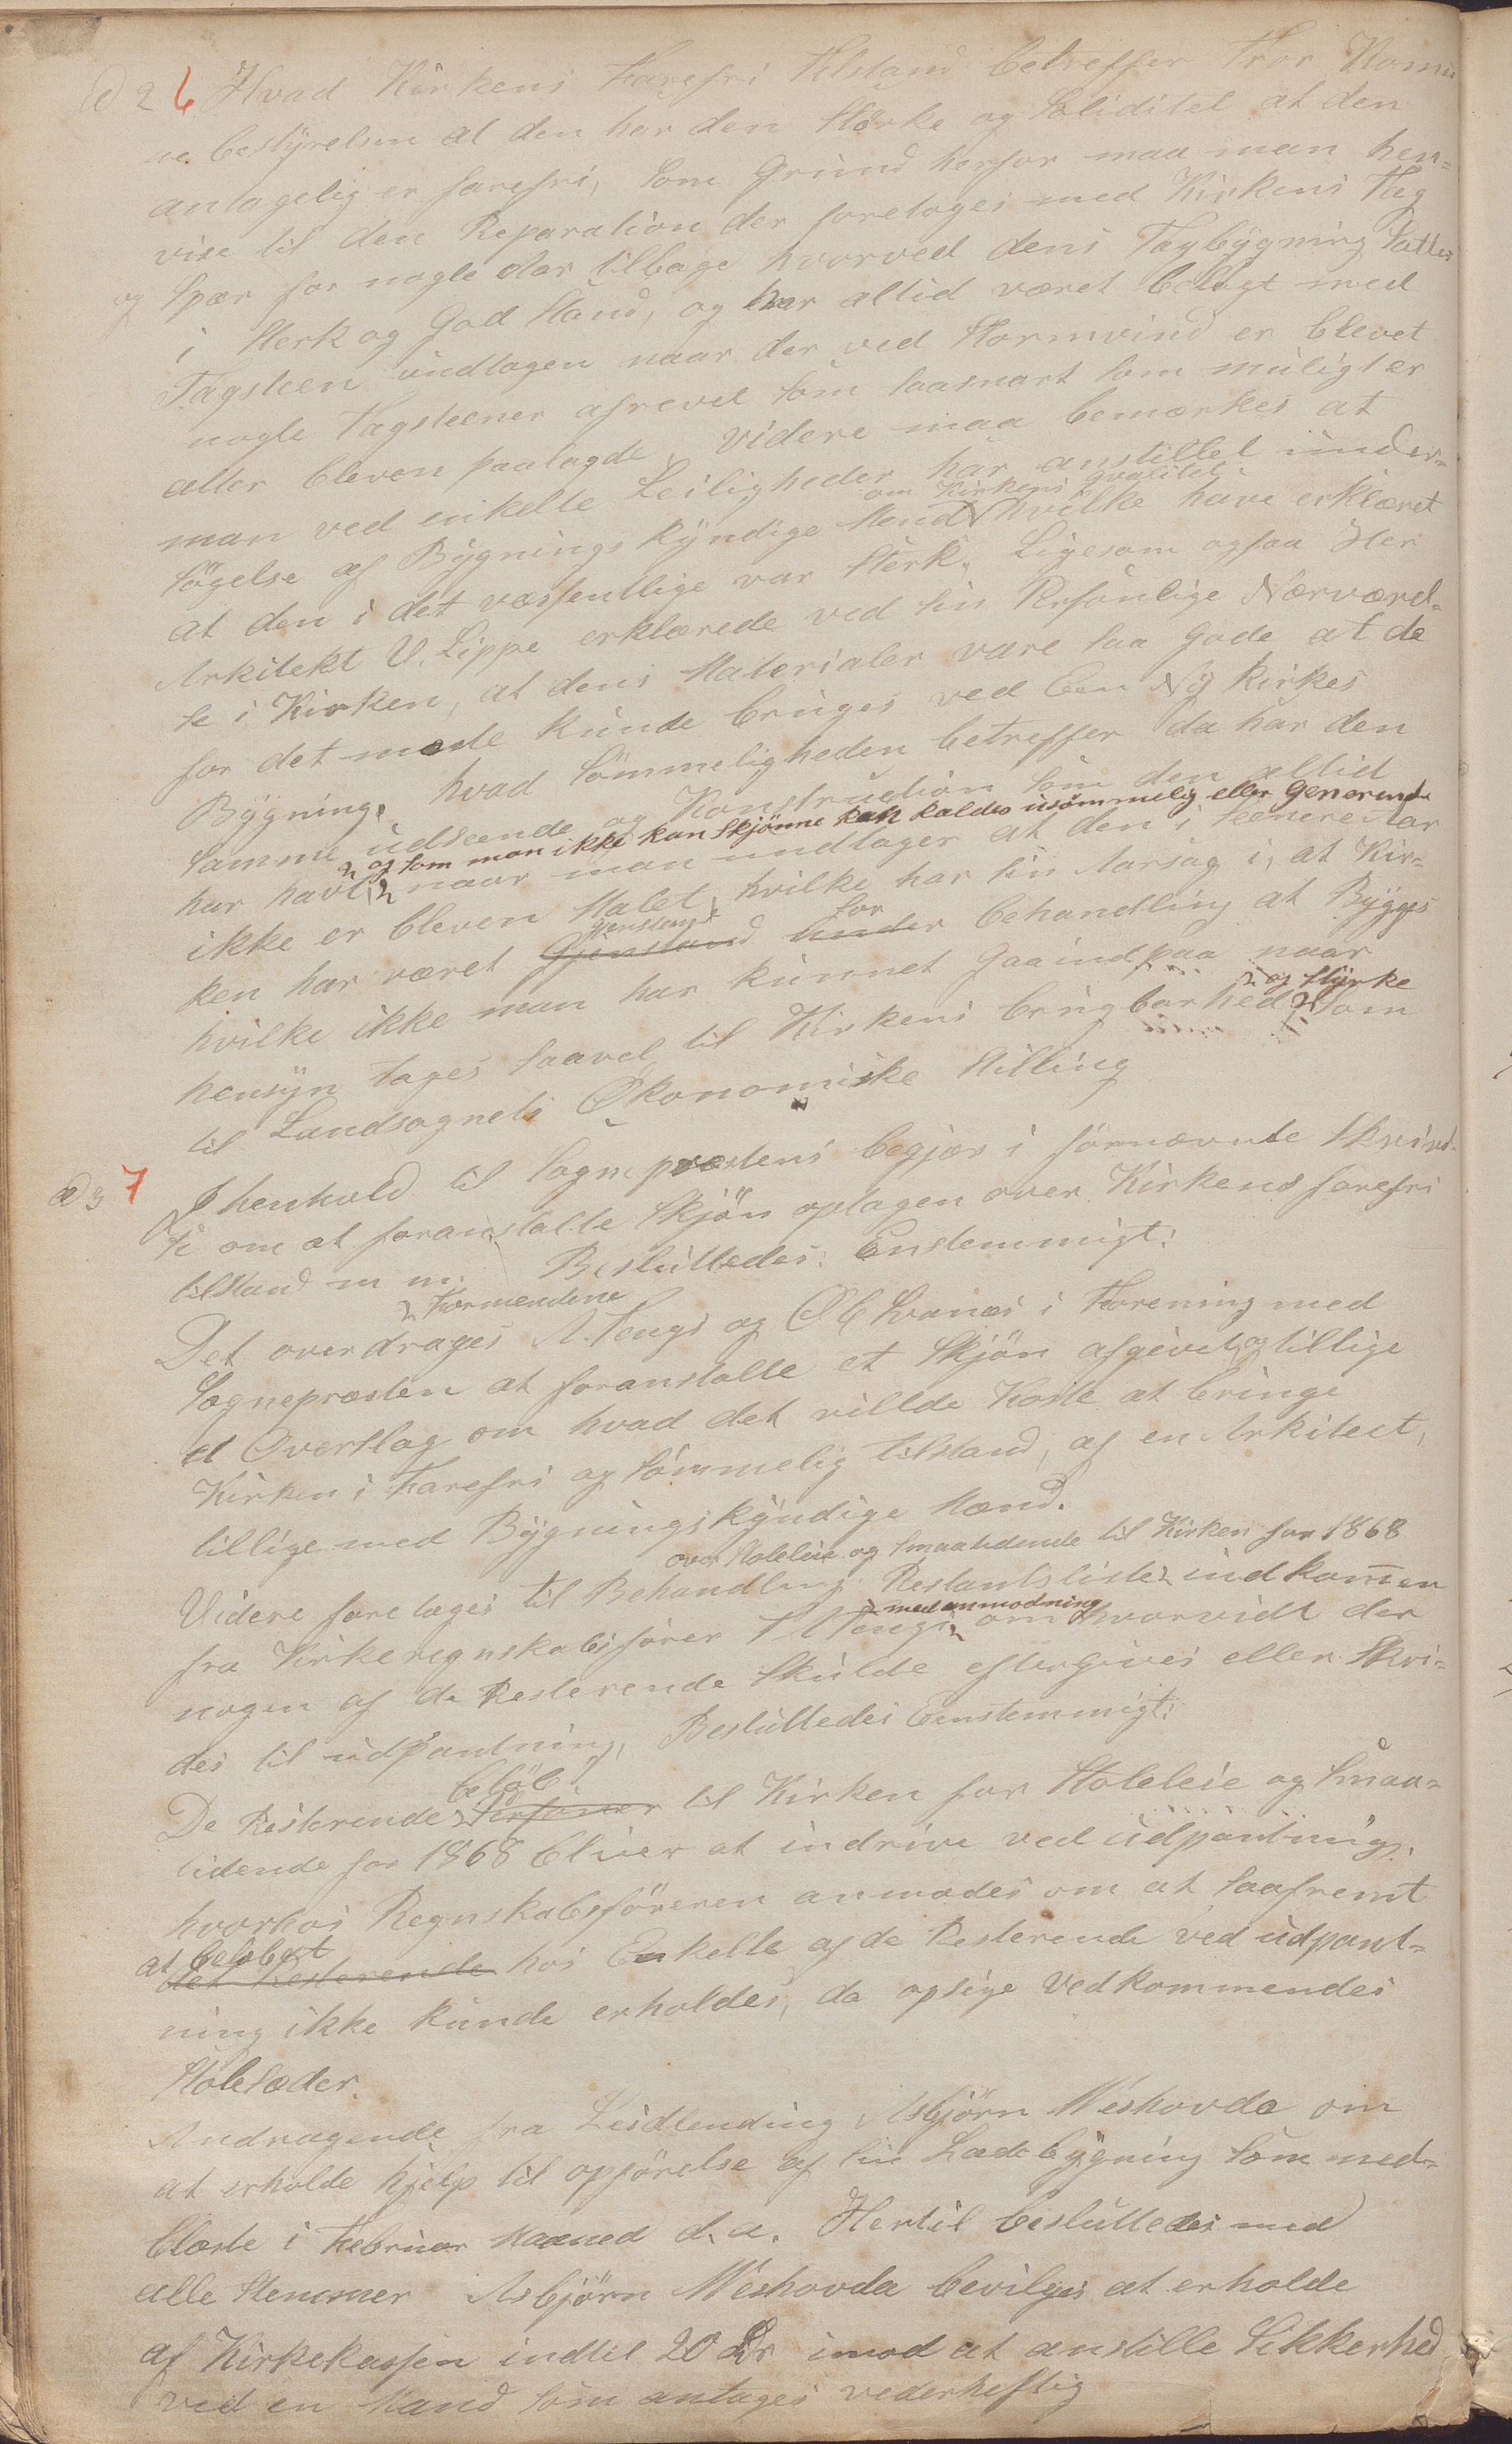 ad 2 6 Hvad Kirkens Farefri tilstand betreffer tror Komu
ne bestÿrelsen at den har den Stÿrke og Soliditet at den
antagelig er farefri, Som Grund herfor maa man hen=
vise til den Reparation der foretoges med Kirkens Tag
og Spær for nogle Aar tilbage hvorved dens Tagbÿgning Sattes
i Sterk og God Stand, og har altid været belagt med
Tagsteen undtagen naar der ved Stormvind er blevet
nogle Tagsteener afrevet Som saasnart som muligt er
atter bleven paalagde, videre maa bemærkes at
man ved enkelte Leiligheder har anstillet under=
søgelse af Bÿgnings Kÿndige Mend om Kirkens Hvilke have erklæret
at den i det væssentlige var Sterk, Ligesom ogsaa Her
Arkitekt V. Lippe erklærede ved sin Personlige Nærværel=
se i Kirken, at dens Materialer være saa Gode at de
for det meste kunde bruges ved Een Nÿ Kirkes
Bÿgning, hvad Sömmeligheden betreffer da har den
Samme udseende og Konstruction Som den altid
har havt, og som man ikke kan Skjönne kan kaldes usömmelig eller Generende naar man undtager at den i Seenere Aar
ikke er bleven Malet, hvilke har sin Aarsag i, at Kir=
ken har været gjenstand for behandling at Bÿgges
hvilke ikke man har kunnet Gaa ind paa naar
hensÿn tages saavel til Kirkens brugbarhed og Stÿrke Som
til Landsognets Økonomiske Stilling
ad 3 7 I henhold til Sogneprestens begjær i fornævnte Skrivel=
se om at foranstalte Skjön optagen over Kirkens farefri
tilstand m m. Besluttedes: Enstemmigt:
Det overdrages Formendene A. Tengs og O E Svanæs i Forening med
Sognepræsten at foranstalte et Skjön afgivet og tillige
et Overslag om hvad det villde Koste at bringe
Kirken i Farefri og Sömmelig tilstand, af en Arkitect,
tillige med Bÿgningskÿndige Mænd.
Videre foretages til Behandling Restantsliste over Stoleleie og Smaatidende til Kirken for 1868 indkommen
fra Kirkeregnskabsförer T A Tengs med anmodning om hvorvidt der
nogen af de Resterende Skulde eftergives eller Skri=
des til udpantning, Besluttedes Eenstemmigt:
De Resterende belöb til Kirken for Stoleleie og Smaa=
tidende for 1868 bliver at indrive ved udpantning.
hvorhos Regnskabsföreren anmodes om at saafremt
at belöbet hos Enkelte af de Resterende ved udpant=
ning ikke kunde erholdes, da opsige Vedkommendes
Stolesæder.
Andragende fra Leidlending Asbjörn Meshovda om
at erholde hjelp til opförelse af sin Lade bÿgning Som ned=
blæste i Februar Maaned d. a. Hertil besluttedes med
alle Stemmer Asbjörn Meshovda bevilges at erholde
af Kirkekassen indtil 20 Sdr imod at anstille Sikkerhed
ved en Mand som antages vederheftig